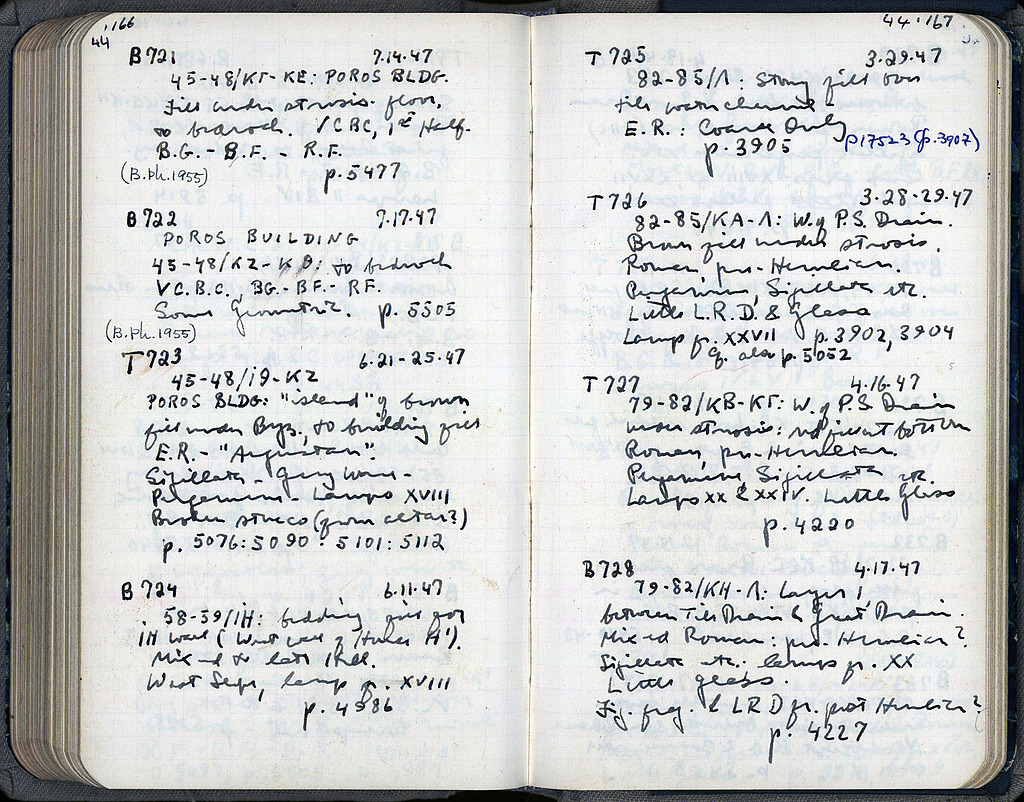 166
44
B 721 7.14.47
45-48/ΚΓ-ΚΕ: POROS BLDG.
Fill under strosis floor,
to bedrock. VCBC, 1st Half.
B.G. - B.F. - R.F.
(B.Ph.1955) p. 5477
B 722 7.17.47
POROS BUILDING
45-48/ΚΖ-ΚΘ: to bedrock
V C.B.C. BG.-BF.-RF.
Some Geometric. p. 5505
(B.Ph.1955)
T 723 6.21-25.47
45-48/ΙΘ-ΚΖ
POROS BLDG: "island" of brown
fill under Byz. to building fill
E.R. - "Augustan".
Sigillata - Gray Ware -
Pergamene - Lamps XVIII
Broken stucco (from altar?)
p. 5076: 5090: 5101: 5112
B 724 6.11.47
58-59/ΙΗ: bedding fill for
ΙΗ wall (West wall of House H').
Mixed to late Hell.
West Slope, lamp fr. XVIII
p. 4986
44 167
T 725 3.29.47
82-85/Λ: Strong fill over
fill water channel
E.R.: Coarse Only
p. 3905 P17523 (p. 3907)
T 726 3.28-29.47
82-85/ΚΑ-Λ: W. of P.S. Drain.
Brown fill under strosis.
Roman, pre-Herulian
Pergamene, Sigillata etc.
Little L.R.D. & Glass
Lamp fr. XXVII p. 3902, 3904
Cf. also p. 5052
T 727 4.16.47
79-82/ΚΒ-ΚΓ: W. of P.S. Drain
under strosis: red fill at bottom
Roman, pre-Herulian.
Pergamene, Sigillata etc.
Lamps XX & XXIV. Little Glass
p. 4220
B 728 4.17.47
79-82/ΚΗ-Λ: Layer 1
between Tile Drain & Great Drain.
Mixed Roman: pre-Herulian?
Sigillata etc. lamp fr. XX
Little glass.
Fig. frag. & LRD fr. post Herulian?
p. 4227